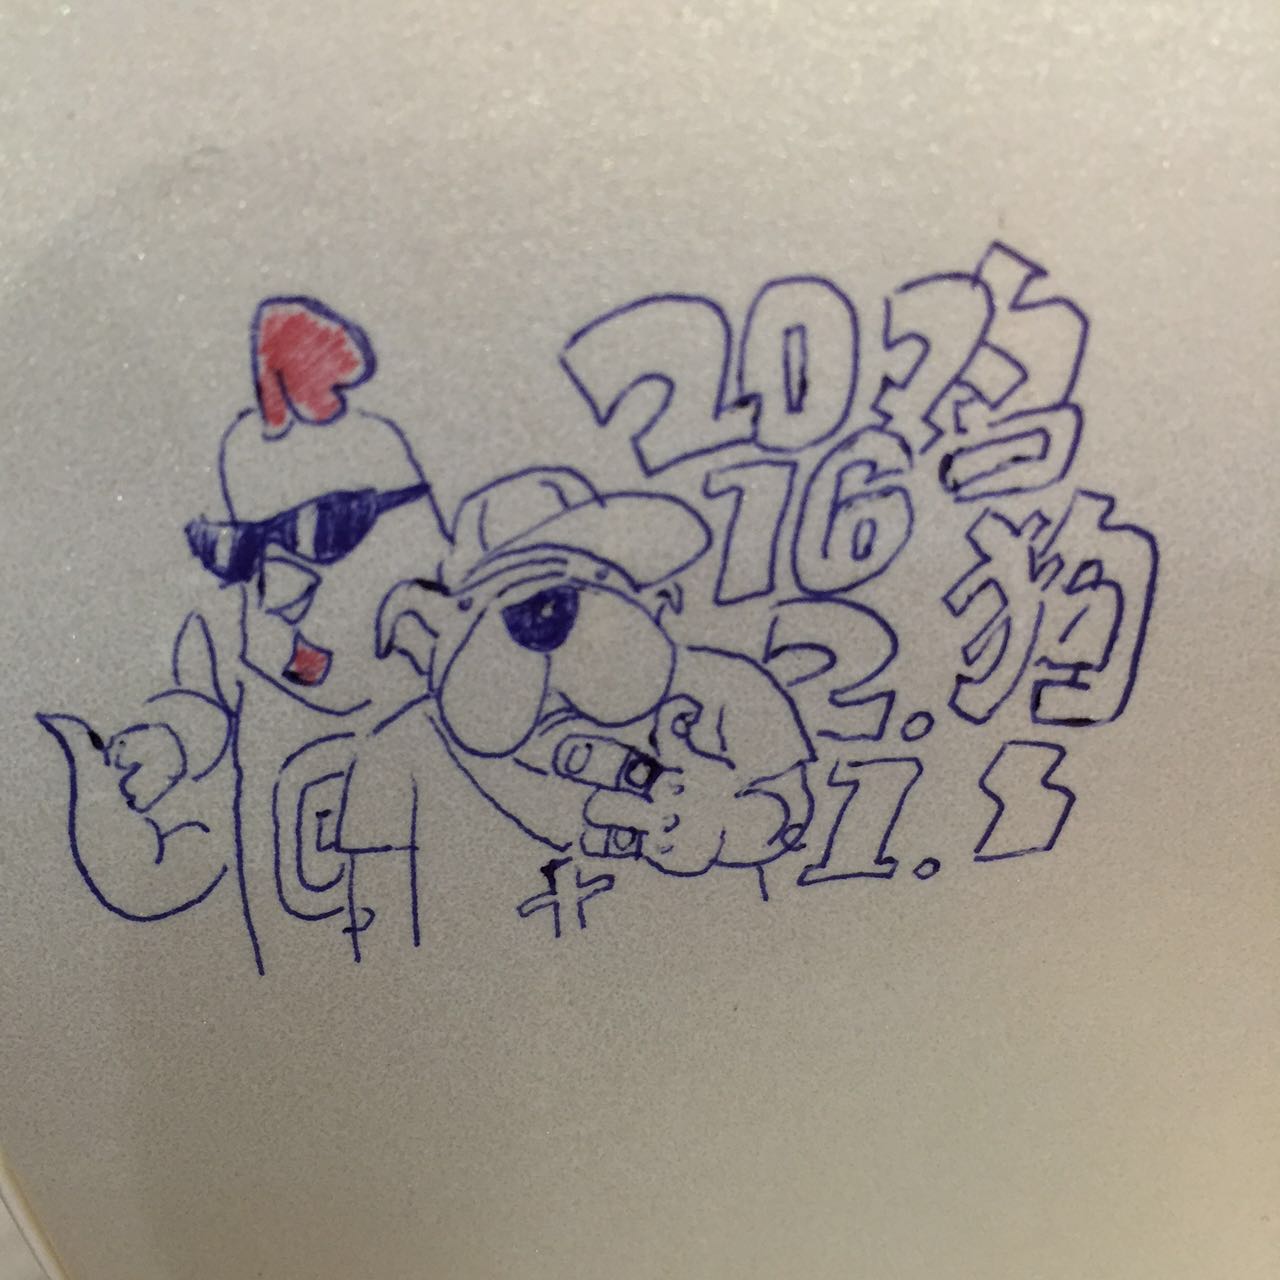 20
16
2.
1.
鸡狗